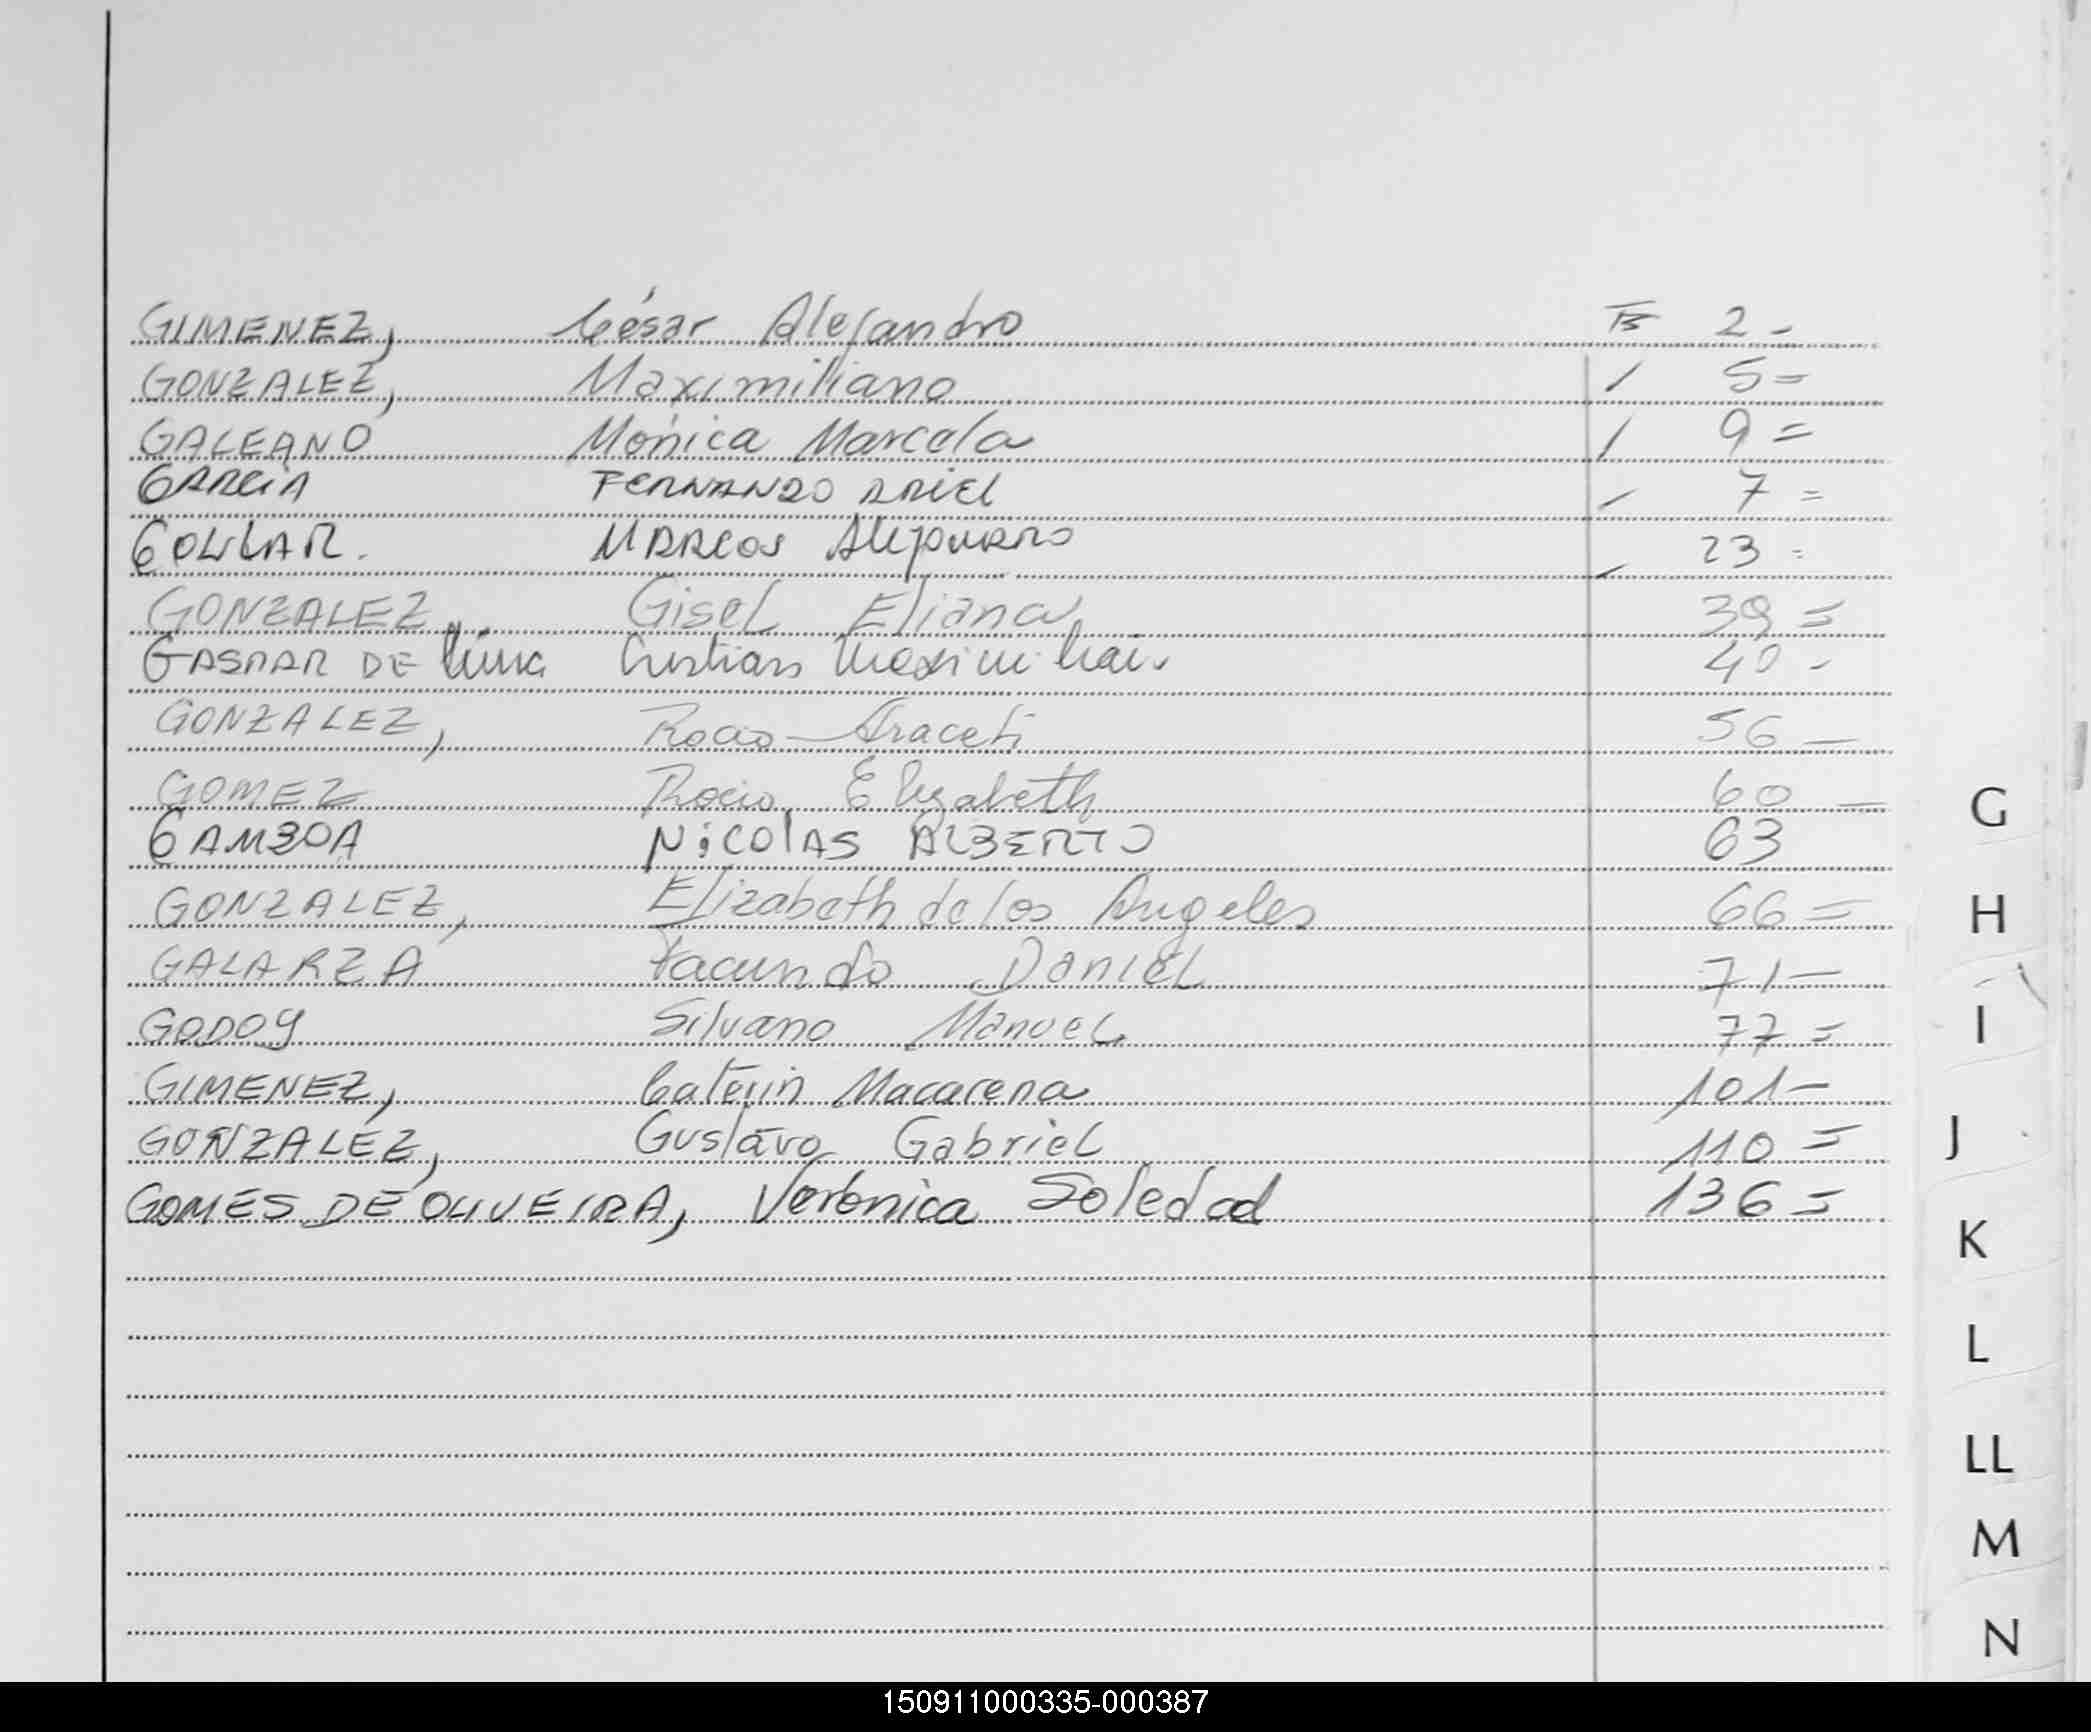 GIMENEZ, César Alejandro 2 -
GONZALEZ, Maximiliano / 5 =
GALEANO Mónica Marcela / 9 =
GARCIA FERNANDO ARIEL - 7 =
MARCOS Alejandro - 23 -
GONZALEZ Gisel Eliana 39 =
GASPAR DE Lima Cristian Maximilian 40 -
GONZALEZ, Rocio Araceli 56 -
GOMEZ Rocio Elizabeth 60 -
GAMBOA NiCOLAS ALBERTO 63
GONZALEZ, Elizabeth de los Angeles 66 =
GALARZA Facundo Daniel 71 -
GODOY Silvano Manuel 77 =
GIMENEZ, Caterin Macarena 101 -
GONZALEZ, Gustavo Gabriel 110 =
GOMES DE OLIVEIRA, Verónica Soledad 136 =
G
H
I
J
K
L
LL
M
N
150911000335-000387